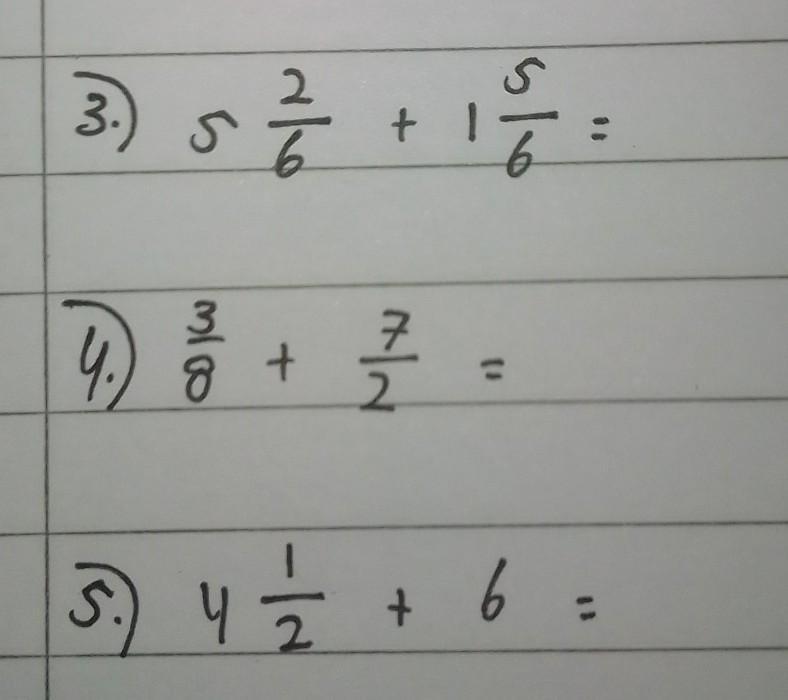 3.) 5 2/6 + 1 5/6 =
4.) 3/8 + 7/2 =
5.) 4 1/2 + 6 =